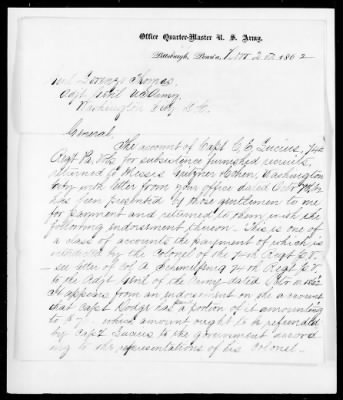 Office Quarter-Master U. S. Army,
Pittsburgh, Penn'a, Nov 20th 1862
Genl Lorenzo Thomas,
Adjt Genl U S Army,
Washington City D. C.
General,
The account of Capt C. E. Lucius, 74th
Regt Pa. Vols for subsistence furnished recruits,
returned to Messrs & Ahern, Washington
City with letter from your office dated Octr
has been presented by those gentlemen to me
for payment and returned to them with the
following endorsement thereon - This is one of
a class of accounts the payment of which is
by the Colonel of the 74th Regt P. V.
- see letter of Col A Schimmelfing 74th Regt P. V.
to the Adjt Genl of the Army dated 1862
It appears from an endorsement on the accounts
that Capt Dodge has a portion of it amounting
to $7 which amount ought to be refunded
by Capt Lucius to the government accord
ing to the representations of his Colonel -